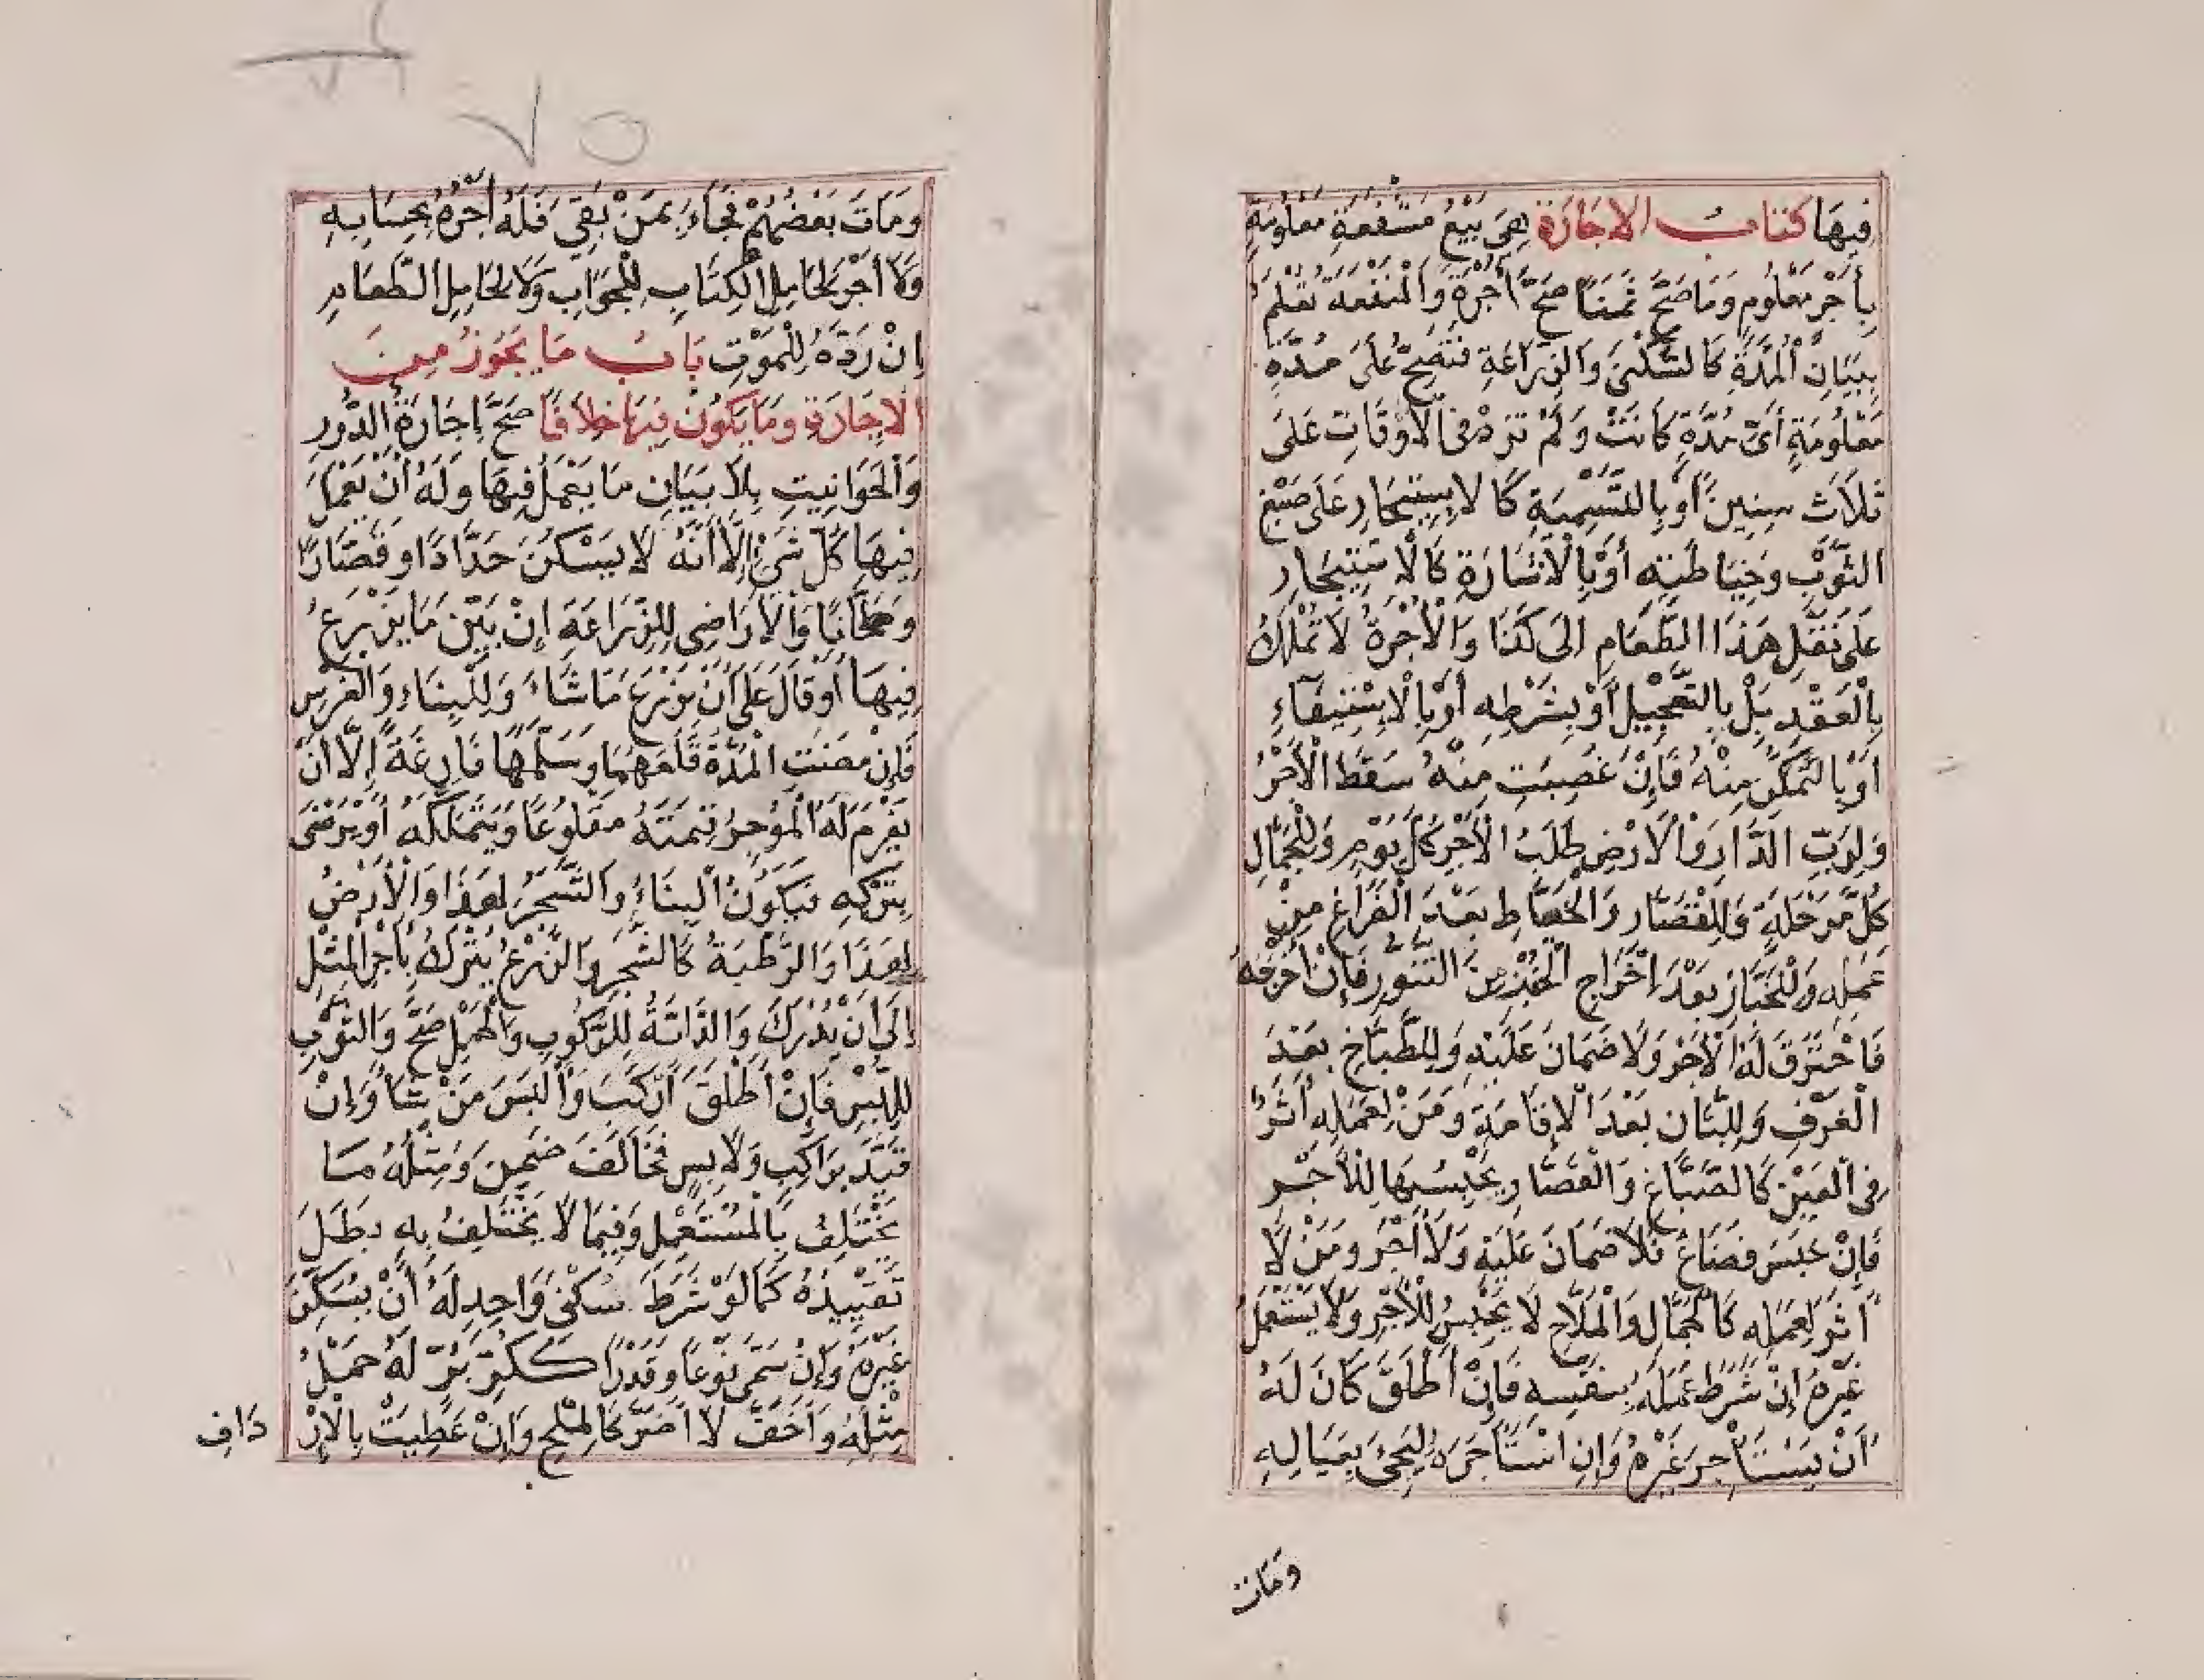 فِيهَا كتاب الاجَارَة هِىَ بَيْعُ مَنْفَعَةٍ مَعْلُومَةٍ
بِأَجْرٍ مَعْلُومٍ وَمَا صَحَّ ثَمَنًا صَحَّ أُجْرَةً وَالْمَنْفَعَةُ تُعْلَمُ
بِبَيَانِ الْمُدَّةِ كَالسُّكْنَى وَالزِّرَاعَةِ فَتَصِحُّ عَلَى مُدَّةٍ
مَعْلُومَةٍ أَىَّ مُدَّةٍ كَانَتْ وَلَمْ تزدْ فى الأَوْقَاتِ عَلَى
ثَلاَثَ سِنِينَ أَوْ بِالتَّسْمِيَةِ كَالاِسِتِيجَارِ عَلَى صَبْغِ
الثَّوْبِ وَخِيَاطَتِهِ أَوْ بِالْاشَارَةِ كَالْاسْتِيجَارِ
عَلَى نَقْلِ هَذَا الطَّعَامِ الى كَذَا وَالْأُجْرَةُ لَا تُمْلَكُ
بِالْعَقْدِ بَلْ بِالتَّعْجِيْلِ أَوْ بِشَرْطِهِ أَوْ بِالْاِسْتِيفَآءِ
أَوْ بِالتَّمَكُّنِ مِنْهُ فَإِنْ غُصِبَتِ مِنْهُ سَقَطَ الْأَجْرُ
وَلِرَبِّ الدَّارِ وَالْاَرْضِ طَلَبُ الْأَجْرِ كُلَّ يَوْمٍ وَلِلْجَمَّالِ
كُلَّ مَرْحَلَةٍ وَلِلْقَصَّارِ وَالْخَيَّاطِ بَعْدَ الْفَرَاغِ مِنْ
عَمَلِهِ وَلِلْخَبَّازِ بَعْدَ اِخْرَاجِ الْخُبْزِ مِنَ التَّنُّورِ فَإِنْ أَخْرَجَهُ
فَاحْتَرَقَ لَهُ الْأَجْرُ وَلَا ضَمَانَ عَلَيْهِ وَلِلطَّبَّاخِ بَعْدَ
الْغَرْفِ وَلِلَّبَّانِ بَعْدَ الْاِقَامَةِ وَمَنْ لِعَمَلِهِ أَثَرٌ
فِى الْعَيْنِ كَالصَّبَّاغِ وَالْقَصَّارِ يَحْبِسُهَا لِلْأَجْرِ
فَإِنْ حَبَسَ فَضَاعَ فَلَا ضَمَانَ عَلَيْهِ وَلَا أَجْرَ وَمَنْ لَا
أَثَرَ لِعَمَلِهِ كَالْحَمَّالِ وَالْمَلَّاحِ لَا يَحْبِسُ لِلْأَجْرِ وَلَا يَسْتَعْمِلُ
غَيْرَهُ إِنْ شَرَطَ عَمَلَهُ بِنَفْسِهِ فَإِنْ أَطْلَقَ كَانَ لَهُ
أَنْ يَسْتَأْجِرَ غَيْرَهُ وَإِنِ اسْتَأْجَرَهُ لِيَجِئَ بِعِيَالِهِ
وَمَاتَ
وَمَاتَ بَعْضُهُمْ فَجَآءَ بِمَنْ بَقِىَ فَلَهُ أَجْرُهُ بِحِسَابِهِ
وَلَا أَجْرَ لِحَامِلِ الْكِتَابِ لِلْجَوَابِ وَلَا لِحَامِلِ الطَّعَامِ
إِنْ رَدَّهُ لِلْمَوْتِ بَابُ مَا يَجُوزُ مِنَ
الْاِجَارَةِ وَمَا يَكُونُ فِيهَا خِلَافًا صَحَّ اِجَارَةُ الدُّورِ
وَالْحَوَانِيتِ بِلَا بَيَانِ مَا يَعْمَلُ فِيهَا وَلَهُ أَنْ يَعْمَلَ
فِيهَا كُلَّ شَىْءٍ إِلَّا أَنَّهُ لَا يسْكنُ حَدَّادًا اَو قَصَّارًا
وَطَحَّانًا وَالْأَرَاضِى لِلزِّرَاعَةِ إِنْ بَيَّنَ مَا يَزْرَعُ
فِيهَا أَوْ قَالَ عَلَى أَنْ يَزْرَعَ مَا شَاءَ وَلِلْبِنَاءِ وَالْغَرْسِ
فَإِنْ مَضَتِ الْمُدَّةُ قَلَعَهُمَا وَسَلَّمَهَا فَارِغَةً إِلَّا أَنْ
يَغْرِمَ لَهُ الْمُؤجِرُ قِيمَتَهُ مَقْلُوعًا وَيَتَمَلَّكَهُ أَوْ يَرْضَى
بِتَرْكِهِ فَيَكُونُ الْبِنَاءُ وَالشَّجَرُ لِهَذَا وَالْأَرْضُ
لِهَذَا وَالرَّطْبَةُ كَالشَّجَرِ وَالزَّرْعُ يُتْرَكُ بِأَجْرِ الْمِثْلِ
إِلَى أَنْ يُدْرَكَ وَالدَّابَّةُ لِلرُّكُوبِ وَالْحَمْلِ صَحَّ وَالثَّوْبِ
لِلُّبْسِ فَإِنْ أَطْلَقَ أَرْكَبَ وَأَلْبَسَ مَنْ شَاءَ وَإِنْ
قَيَّدَ بِرَاكِبٍ وَلَابِسٍ فَخَالَفَ ضَمِنَ وَمِثْلُهُ مَا
يَخْتَلِفُ بِالْمُسْتَعْمِلِ وَفِيمَا لَا يَخْتَلِفُ بِهِ بَطَلَ
تَقْيِيدُهُ كَمَا لَوْ شَرَطَ سُكْنَى وَاحِدٍ لَهُ أَنْ يُسْكِنَ
غَيْرَهُ وَإِنْ سَمَّى نَوْعًا وَقَدْرًا كَكُرِّ بُرٍّ لَهُ حَمْلُ
مِثْلِهِ وَأَخَفَّ لَا أَضَرَّ كَالْمِلْحِ وَإِنْ عَطِبَتْ بِالْإِرْ
دَافِ